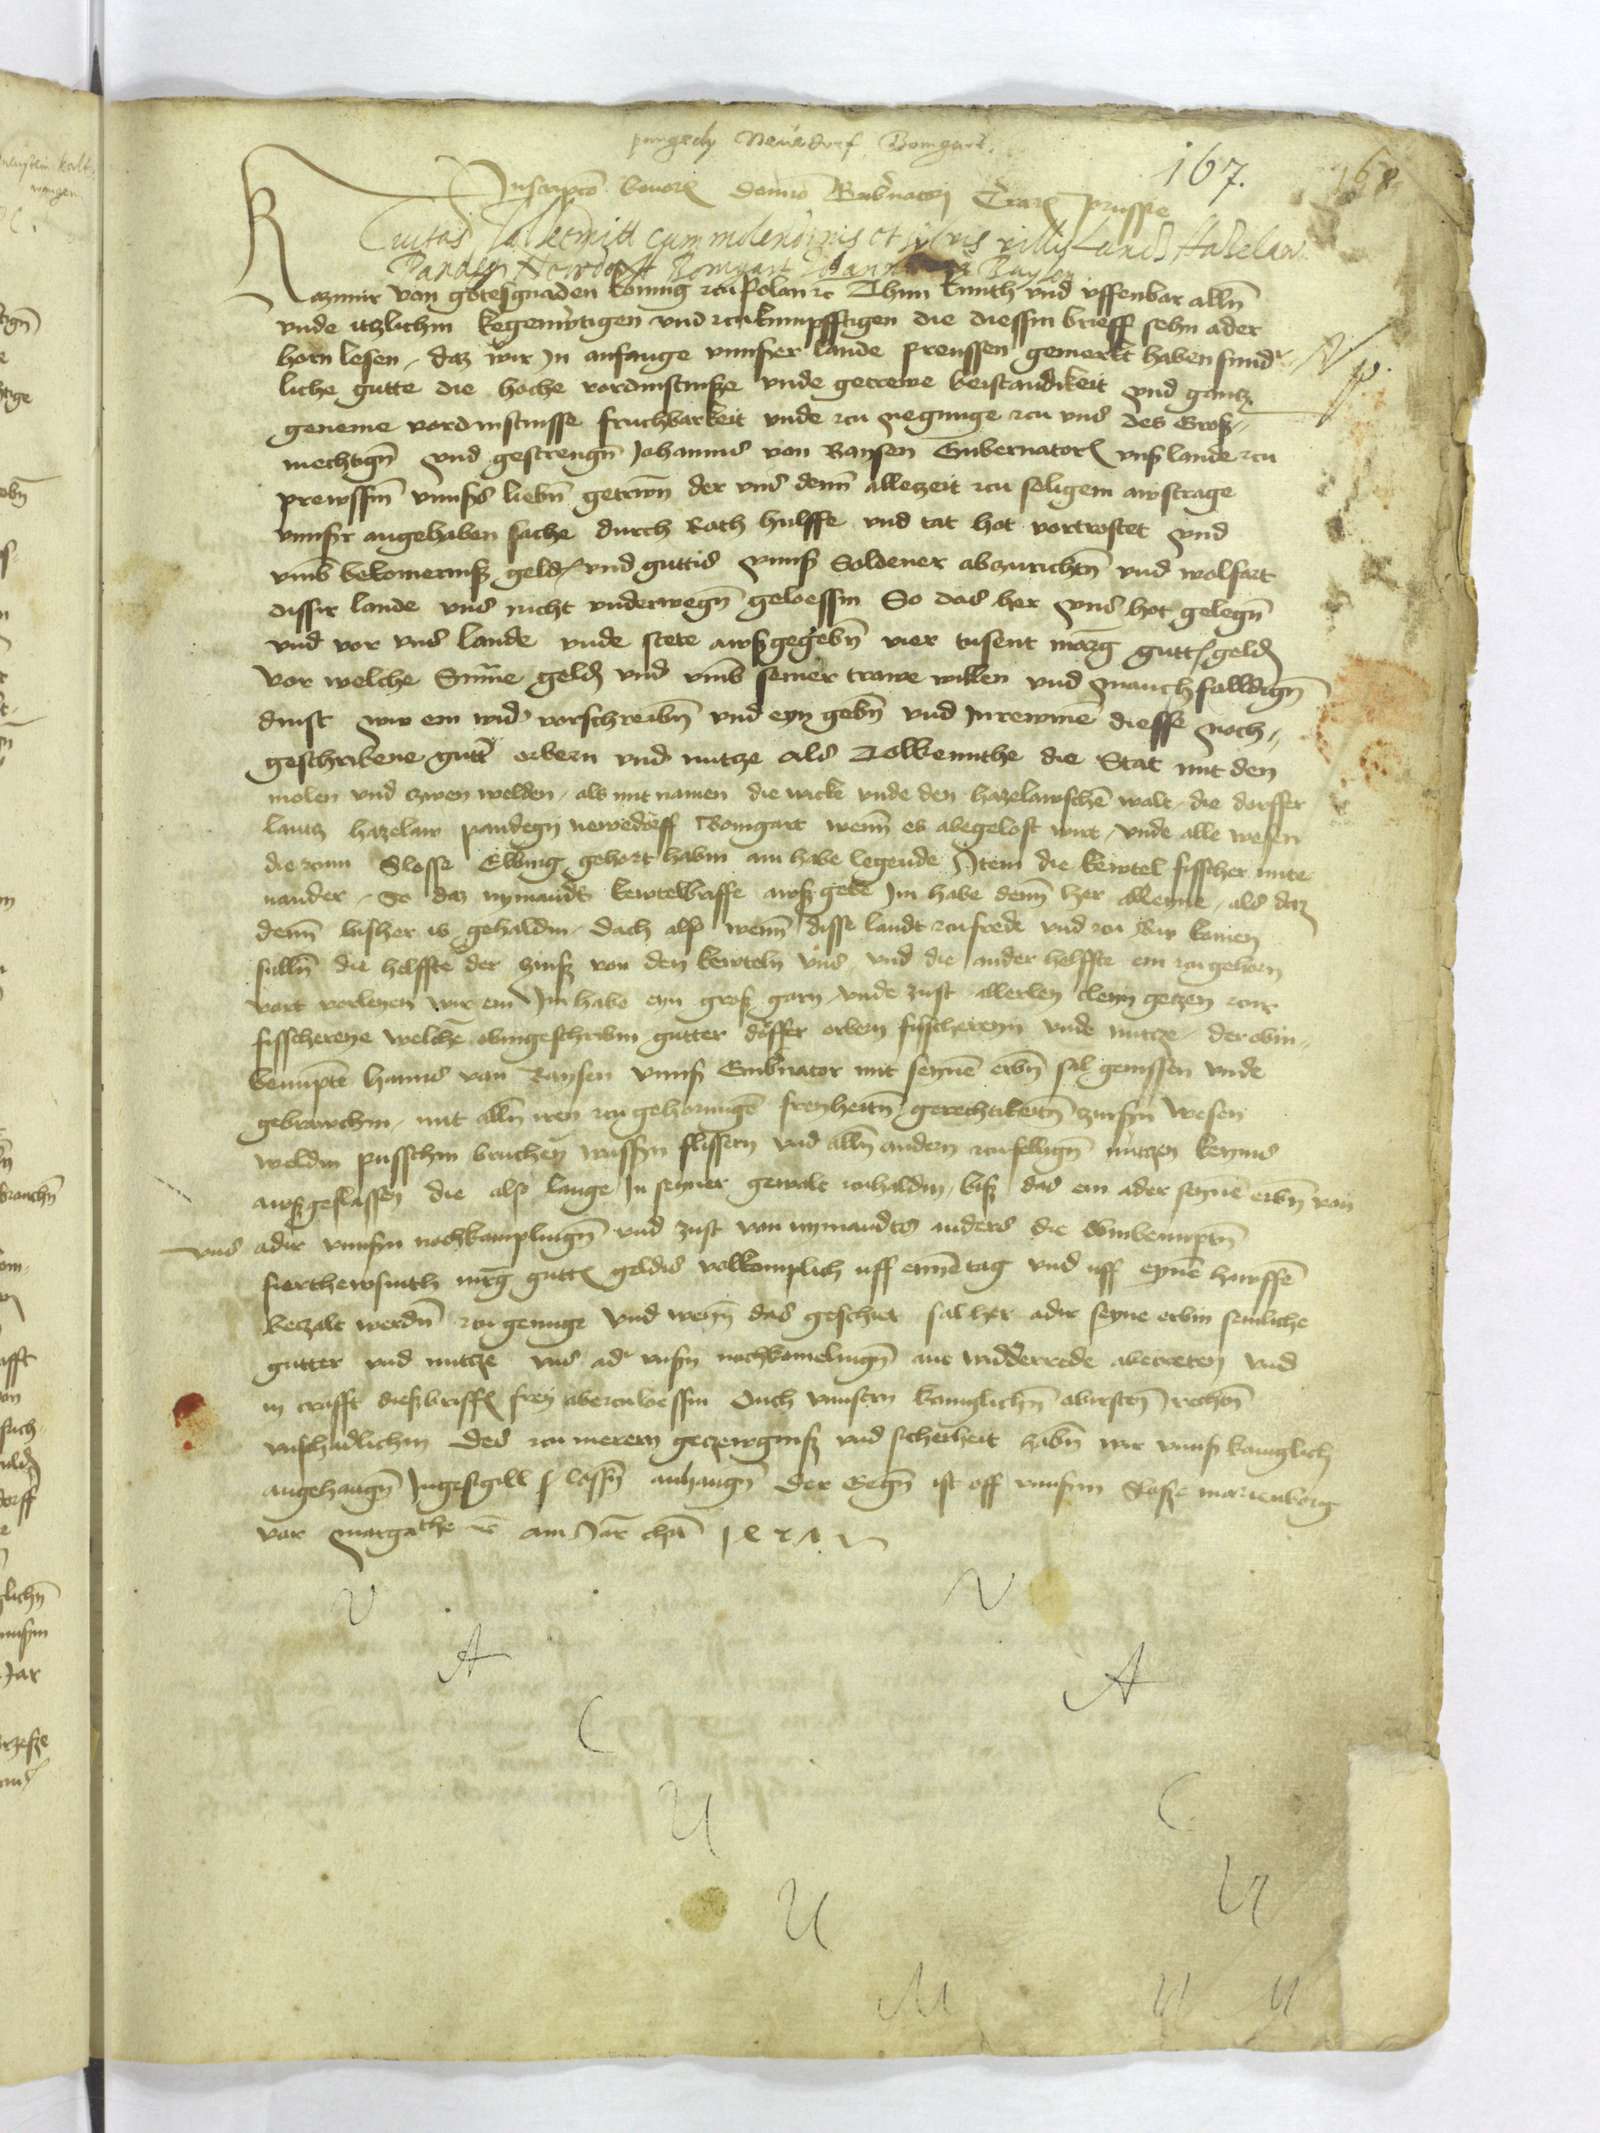 pangedy Neuedorf Bomgart.
167.
Inscripto bonorum domino Gubernatori Terrarum prussie
Civitas Tolkemitt cum molendinis et silvis villis Lancz Haselaw
Pandegn Newdorff Bomgart Johann Baysen
Kazimir von gotesgnaden koning zcu Polan etc Thun kunth vnd uffenbar alln
vnde itzlichin kegenwertigen vnd zcukumpfftigen die diessin brieff sehn ader
horn lesen, daz wir In anfange vnnser lande prewssen gemerkt haben sund
liche gutte die hoche vordinstnisse vnde getrewe beistandikeit vnd gantz
geneme vordinstnisse fruchbarkeit vnde zcu negunge zcu vns des Gros
mechtign vnd gestrengn Johannis von Baysen Gubernator vnsr lande zcu
prewssin vnnsrs liebn getrwn der vns denn allezeit zcu seligem awstrage
vnnsir angehaben sache durch Rath hulffe vnd tat hot vortrostet vnd
vmb bekomernisz geldes vnd guttis vnnsr Soldener abzurichtn vnd wolfart
dissir lande vns nicht vnderwegn geloessin So das her vns hot gelegn
vnd vor vns lande vnde stete awszgegebn vier tusent marg gutts geldes
vor welche Summe geldes vnd vmb seiner trawe willen vnd manchfalldign
dinst wir em wid vorschreibn vnd eyn gebn vnd Inrewmen diesse noch
geschribene gutter erbern vnd nutze als Tolkemithe die Stat mit den
molen vnd zwen welden, als mit namen die wicke vnde den hazelawschen walt, die dorffer
lantz hazelaw pandegn newedorff Bomgart wenn es abegelost wirt, vnde alle wesen
die zcum Slosse Elbing gehort habin am habe legende Item die kewtel fisscher mite
nander, So daz nymandt kewtelbriffe awszgebe Im habe denn her alleyne, als daz
denn bisher is gehaldin, dach also wenn disse landt zcufrede vnd zcu Rw komen
sulln die helffte der zinsz von den kewteln vns, vnd die ander helffte em zcugehorn
vort vorleyen wir em Im habe eyn grosz garn, vnde zust allerley cleyn getzew zcur
fisscherey welche obingeschribin gutter dorffer erbern fischereyn vnde nutze, der obin
benumpte hannis van Baysen vnnsr Gubernator mit seynen erbn sal genissen vnde
gebrawchin, mit alln iren zcugehorunge freyheitn gerechtikeitn zinsyn wesen
weldin pusschin bruchen wassyn flissern vnd alln andern zcufellign nutzen keynis
awszgeslassen die also lange In seyner gewalt zcuhaldin, bisz das em ader seynen erbn von
vns adir vnnsin nochkomplingn vnd zust von nymandts anders die obinbenumptn
fierthewsnth marg gutts geldis volkomplich uff eynen tag vnd uff eynen hawffen
beczalt werdn zcugenuge Vnd wenn das geschiet sal her adir seyne erbin semliche
gutter vnd nutcze vns adir vnsin nochkomelingn ane widderrede abetreten vnd
in crafft disszbriffs frey abezculoessin Ouch vnnsern koniglichn abirsten rechtn
vnschedlichin Des zcu merem geczewgnisz vnd sicherheit habn wir vnnsr koniglich
angehangn Ingesigill lassn anhangn Der Gegebn ist off vnnsirm Slosse marienborg
vor margarethe etc am Jar
V V
A A
C C
U U
U M
M M